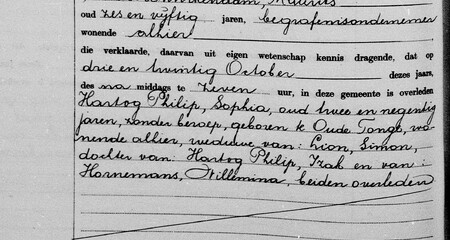 oud zes en vijftig jaren, begrafenisondernemer
wonende alhier
die verklaarde, daarvan uit eigen wetenschap kennis dragende, dat op
drie en twintig October dezes jaars,
des na middags te zeven uur, in deze gemeente is overleden
Hartog Philip, Sophia, oud twee en negentig
jaren, zonder beroep, geboren te Oude Tonge, wo-
nende alhier, weduwe van: Lion, Simon,
dochter van: Hartog Philip, Izak en van:
Hornemans, Willemina, beiden overleden